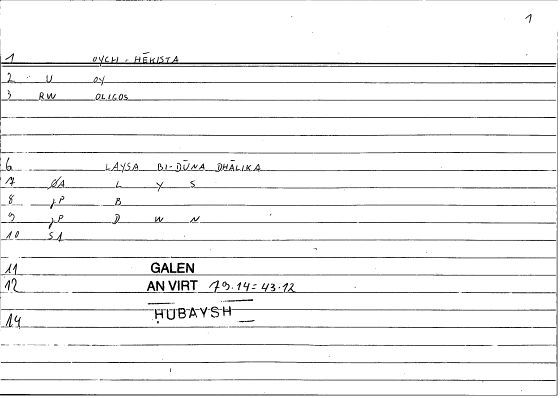 1
1 OYCH-HĒKISTA
2 U OY
3 RW OLIGOS
6 LAYSA BI-DŪNA DHĀLIKA
7 ØA L Y S
8 jP B
9 jP D W N
10 S1
11 GALEN
12 AN VIRT 79.14=43.12
ḤUBAYSH
14